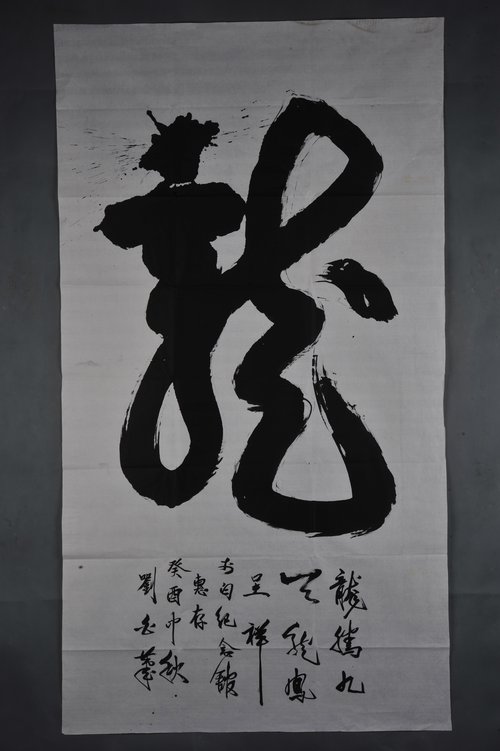 龍
龍騰九
天龍鳳
呈祥
李白紀念館
惠存
癸酉中秋
劉